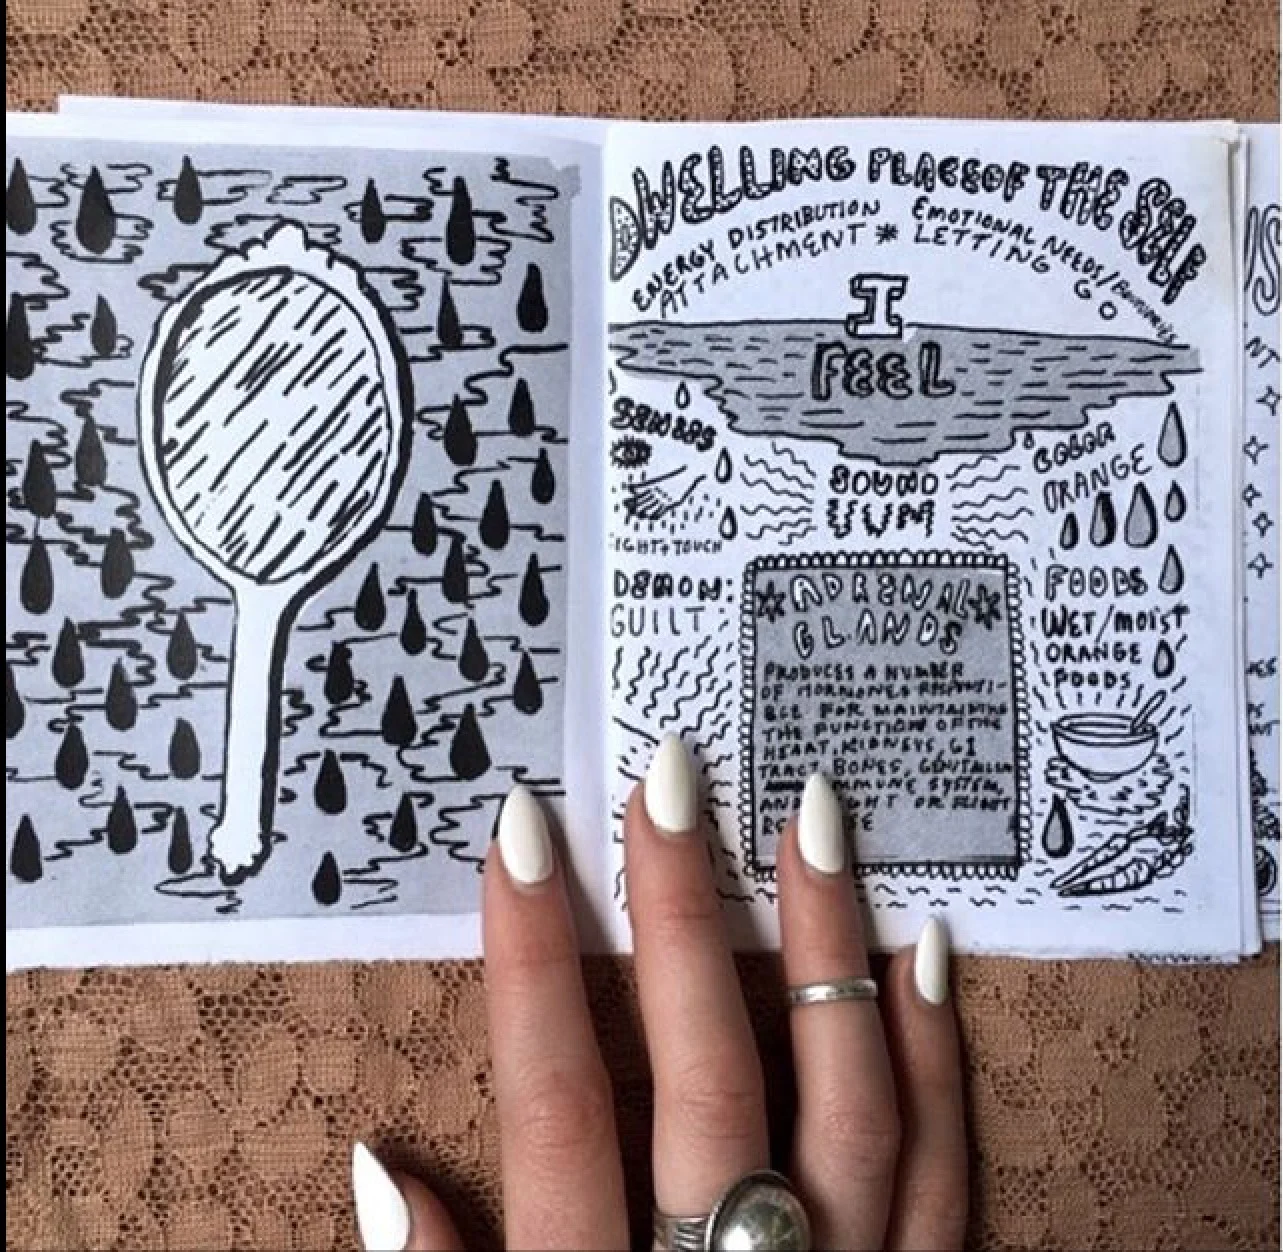 DWELLING PLACE OF THE SELF
ENERGY DISTRIBUTION * EMOTIONAL NEEDS/
ATTACHMENT * LETTING GO
I
FEEL
SENSES
SIGHT + TOUCH
DEMON:
GUILT
SOUND
VUM
COLOR
ORANGE
FOODS
WET/MOIST
ORANGE
FOODS
* ADRENAL *
GLANDS
PRODUCES A NUMBER
OF HORMONES RESPONSI-
BLE FOR MAINTAINING
THE FUNCTION OF THE
HEART, KIDNEYS, GI
TRACT, BONES, GENITALIA
IMMUNE SYSTEM,
AND FIGHT OR FLIGHT
NT